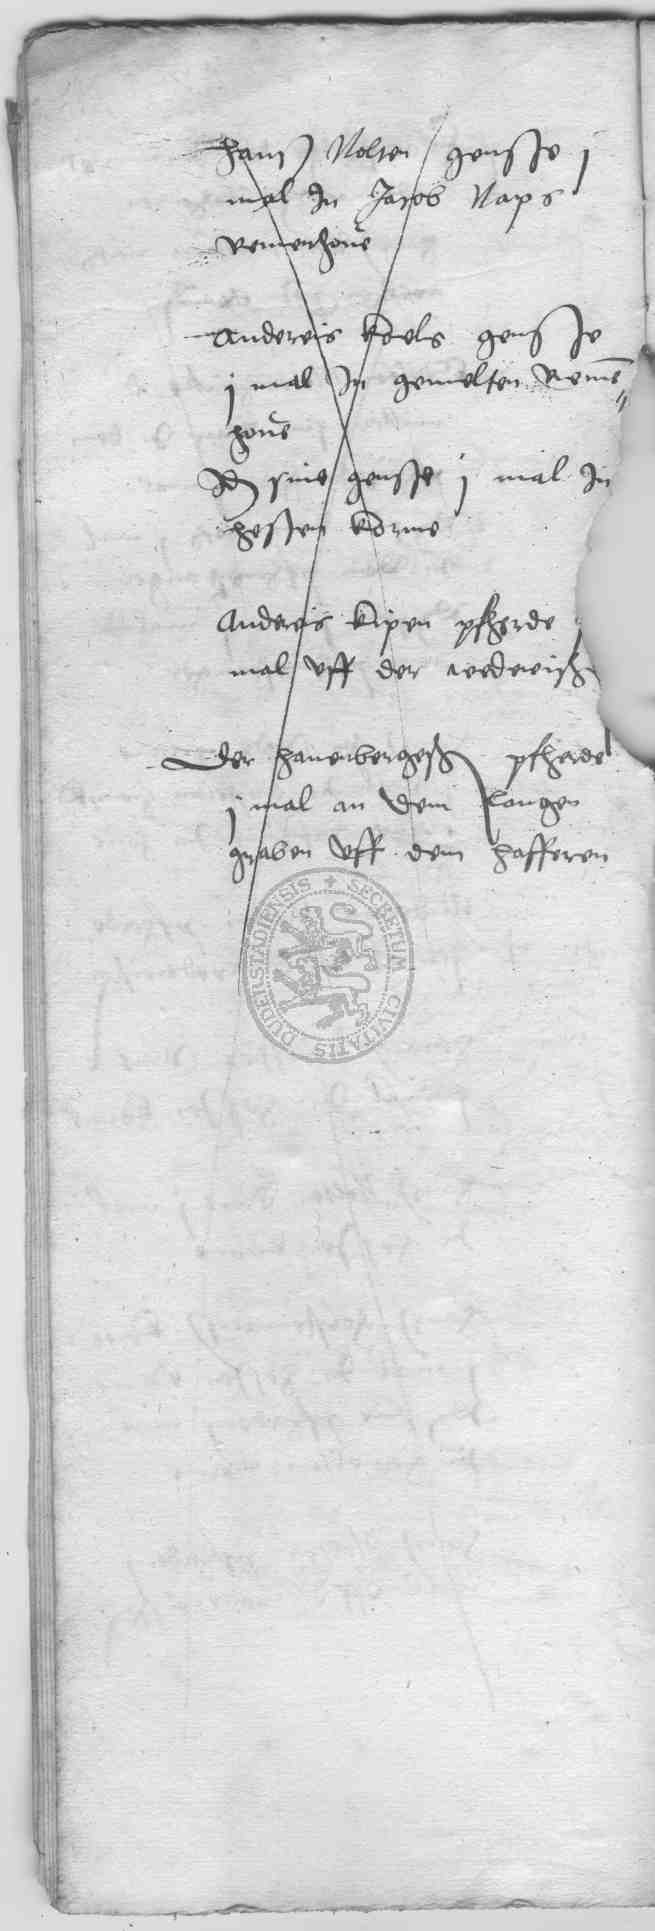 Hans Nolten gensse j
mal In Jacob Naps
Remenhove
Andereis Koels gensse
j mal In gemelten Reme
hove
It sine gensse j mal In
hessen korne
Andereis Kipen pfherde
mal uff der
Der Hanenbergessh pfherde
j mal an dem langen
graben uff dem hafferen
SECRETUM CIVITATIS DUDERSTADIENSIS